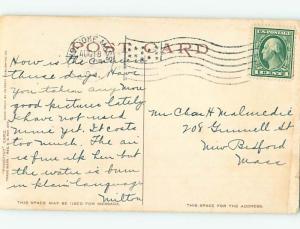 POST CARD
How is the camera
these days. Have
you taken any more
good pictures lately
I have not used
mine yet. It costs
too much. The air
is fine up here but
the water is bum
in plain language
Milton
Mr Chas H
208 Gunnell St
New Bedford
Mass
THIS SPACE MAY BE USED FOR MESSAGE.
THIS SPACE FOR THE ADDRESS.